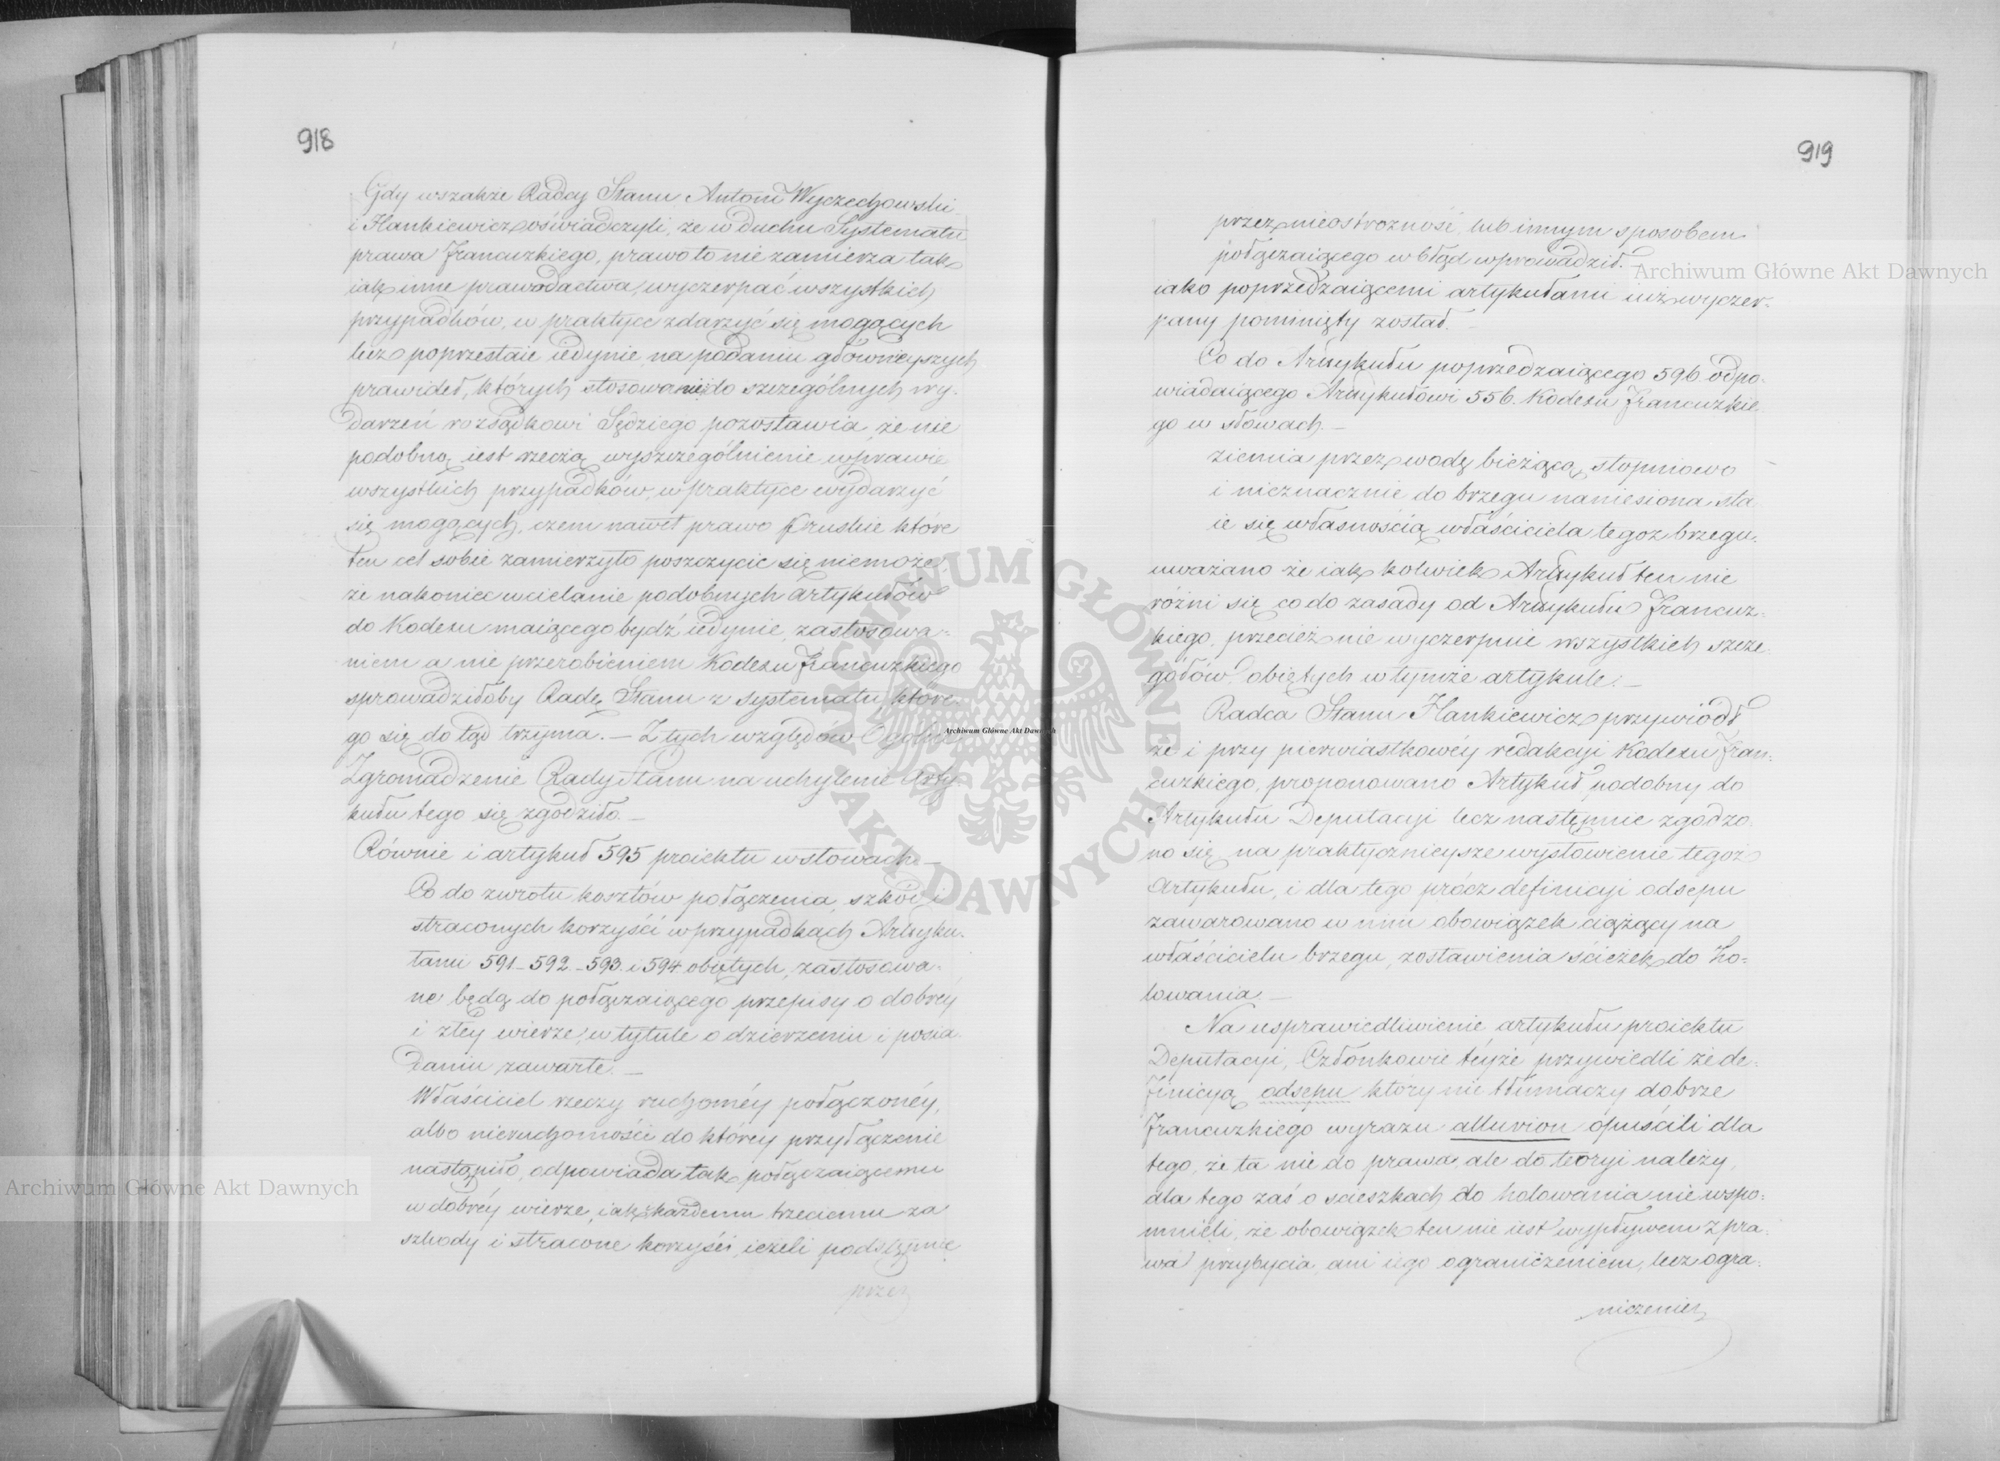 918
Gdy wszakże Radcy Stanu Antoni Wyczechowski
i Hankiewicz oświadczyli, że w duchu Systematu
prawa Francuzkiego, prawo to nie zamierza tak
iak inne prawodactwa, wyczerpać wszystkich
przypadków, w praktyce zdarzyć się mogących
lecz poprzestaie iedynie na podaniu głównieyszych
prawideł, których stosowanie do szczególnych wy-
darzeń rozsądkowi Sędziego pozostawia, że nie
podobną iest rzeczą wyszczególnienie w prawie
wszystkich przypadków w praktyce wydarzyć
się mogących, czem nawet prawo Pruskie które
ten cel sobie zamierzyło poszczycić się niemoże,
że nakoniec wcielanie podobnych artykułów
do Kodexu maiącego bydź iedynie, zastosowa-
niem a nie przerobieniem Kodexu Francuzkiego
sprowadziłoby Radę Stanu z systematu które-
go się do tąd trzyma. — Z tych względów Ogólne
Zgromadzenie Rady Stanu na uchylenie Arty-
kułu tego się zgodziło. —
Równie i artykuł 595 proiektu w słowach —
Co do zwrotu kosztów połączenia, szkód i
straconych korzyści w przypadkach Artyku-
łami 591 - 592 - 593 i 594 obiętych, zastosowa-
ne będą do połączaiącego przepisy o dobréy
i złey wierze, w tytule o dzierzeniu i posia-
daniu zawarte. —
Właściciel rzeczy ruchoméy połączonéy,
albo nieruchomości do któréy przyłączenie
nastąpiło, odpowiada tak połączaiącemu
w dobréy wierze, iak każdemu trzeciemu za
szkody i stracone korzyści, ieżeli podstępnie
przez
919
przez nieostrożność lub innym sposobem
połączaiącego w błąd wprowadził.
iako poprzedzaiącemi artykułami iuż wyczer-
pany pominięty został. —
Co do Artykułu poprzedzaiącego 596 odpo-
wiadaiącego Artykułowi 556. Kodexu Francuzkie-
go w słowach. —
ziemia przez wodę bieżącą, stopniowo
i nieznacznie do brzegu naniesiona sta-
ie się własnością właściciela tegoż brzegu.
uważano że iak kolwiek Artykuł ten nie
różni się co do zasady od Artykułu Francuz-
kiego, przecież nie wyczerpuie wszystkich szcze-
gółów obiętych w tymże artykule. —
Radca Stanu Hankiewicz przywiódł
że i przy pierwiastkowéy redakcyi Kodexu Fran-
cuzkiego, proponowano Artykuł podobny do
Artykułu Deputacyi lecz następnie zgodzo-
no się na praktycznieysze wysłowienie tegoż
Artykułu, i dla tego prócz definicyi odsepu
zawarowano w nim obowiązek ciążący na
właścicielu brzegu, zostawienia ścieżek do ho-
lowania —
Na usprawiedliwienie artykułu proiektu
Deputacyi, Członkowie téyże przywiedli że de-
finicyą odsepu który nie tłumaczy dobrze
francuzkiego wyrazu alluvion opuścili dla
tego, że ta nie do prawa, ale do teoryi należy,
dla tego zaś o scieszkach do holowania nie wspo-
mnieli, że obowiązek ten nie iest wypływem z pra-
wa przybycia, ani iego ograniczeniem, lecz ogra-
niczeniem
Archiwum Główne Akt Dawnych
Archiwum Główne Akt Dawnych
Archiwum Główne Akt Dawnych
ARCHIWUM GŁÓWNE
AKT DAWNYCH